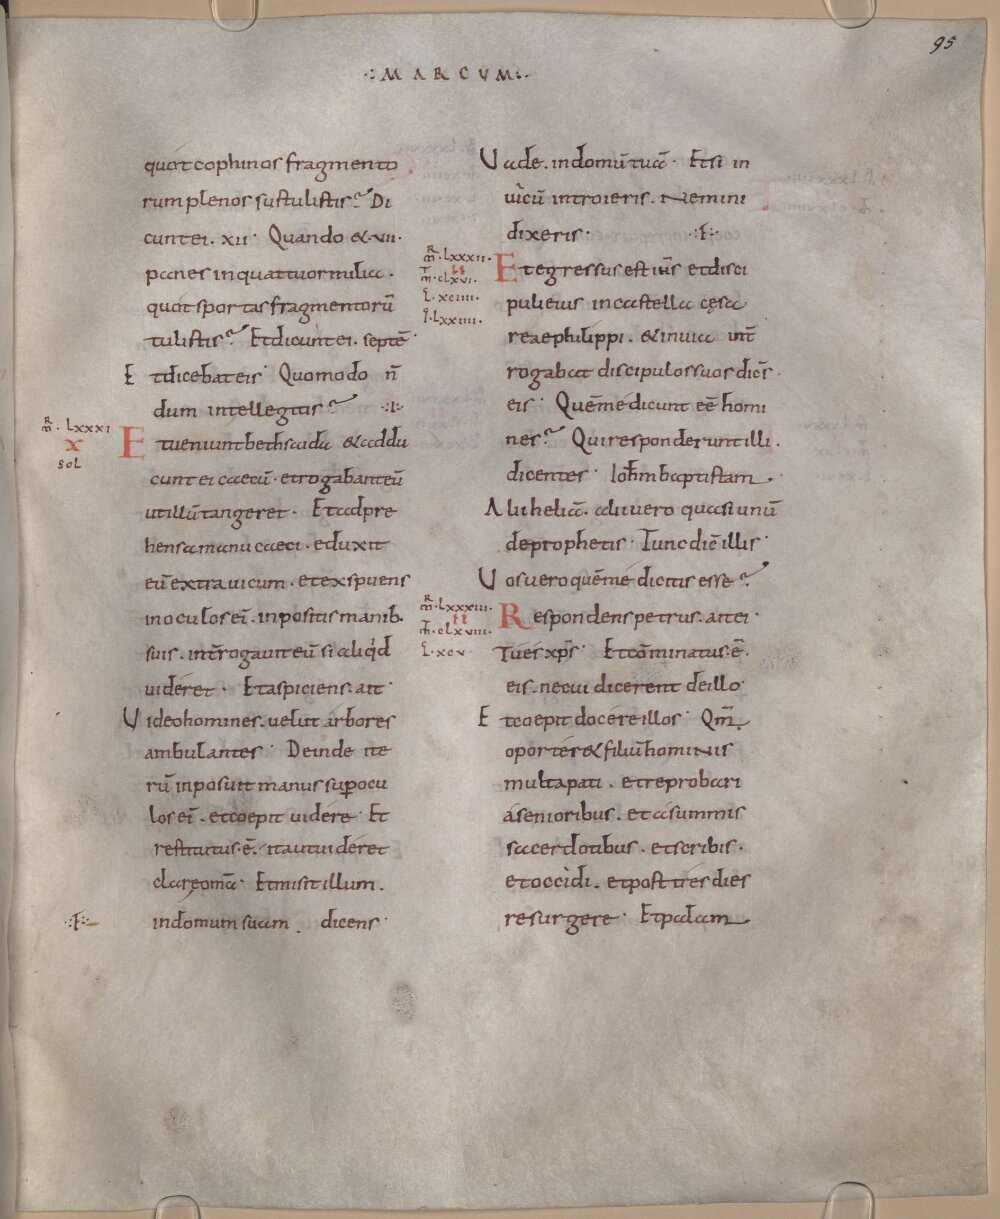 95
·:MARCVM:·
quot cophinos fragmento
rum plenos sustulistis? Di
cunt ei. xii· Quando & vii·
panes in quattuor milia·
quot sportas fragmentorū
tulistis? Et dicunt ei· septē·
Et dicebat eis· Quomodo n̄
dum intellegitis?
m̄· lxxxi
x
sol
Et veniunt bethsaida & addu
cunt ei caecū· et rogabant eū
ut illū tangeret· Et adpre
hensa manu caeci· eduxit
eū extra vicum· et exspuens
in oculos ei· inpositis manib·
suis· int̄rogavit eū si aliqid
videret· Et aspiciens· ait·
Video homines· velut arbores
ambulantes· Deinde ite
rū inposuit manus sup ocu
los ei· et coepit videre· Et
restitutus· ē· ita ut videret
clare omā· Et misit illum·
in domum suam· dicens·
Vade· in domū tuā· Et si in
vicū introieris· Nemini
dixeris·
m̄· lxxxii·
ii
m̄· clxvi·
l· xciiii·
i· lxxiiii·
Et egressus est iħs et disci
puli eius in castella cęsa
reae philippi· & in via int̄
rogabat discipulos suos dicēs·
eis· Quē me dicunt eē homi
nes? Qui responderunt illi·
dicentes· Iohm baptistam·
Alii heliā· alii vero quasi unū
de prophetis· Tunc dic̄ illis·
Vos vero quē me dicitis esse?
m̄· lxxxiii·
ii
m̄· clxviii·
l· xcv·
Respondens petrus· ait ei·
Tu es xp̄s· Et cōminatus· ē·
eis· ne cui dicerent de illo·
Et coepit docere illos· Qm̄
oportet & filiū hominis
multa pati· et reprobari
a senioribus· et a summis
sacerdotibus· et scribis·
et occidi· et post tres dies
resurgere· Et palam